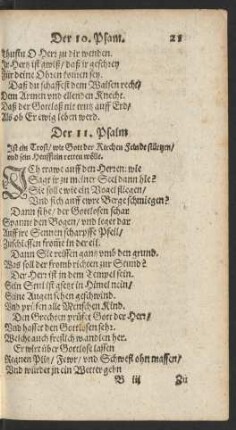 Der 10. Psalm. 21
thustu O Herr zu dir wenden.
Ihr Hertz ist gwiß/ daß jr geschrey
Für deine Ohren kom̃en sey.
Daß du schaffest dem Waisen recht/
Dem Armen vnd ellenden Knecht.
Daß der Gottloß nit trutz auff Erd/
Als ob Er ewig leben werd.
Der 11. Psalm
Ist ein Trost/ wie Gott der Kirchen Feinde stürtzen/
vnd sein Heufflein retten wölle.
ICh trawe auff den Herren: wie
Sagt jr zu meiner Seel dann hie?
Sie soll wie ein Vogel fliegen/
Vnd sich auff ewre Berge schmiegen?
Dann sihe/ der Gottlosen schar
Spannt den Bogen/ vnd leget dar
Auff jre Sennen scharpffe Pfeil/
Zuschiessen from̃e in der eil.
Dann Sie reissen gantz vmb den grund.
Was soll der from̃ richten zur Stund?
Der Herr ist in dem Tempel sein.
Sein Seul ist gsetzt in Himel nein/
Seine Augen sehen geschwind.
Vnd prüfen alle Menschen Kind.
Den Grechten prüfet Gott der Herr/
Vnd hasset den Gottlosen sehr.
Welche auch freslich wandlen her.
Er wirt über Gottlose lassen
Regnen Plitz/ Fewr/ vnd Schwefl ohn massen/
Vnd wirdt jn ein Wetter gehn
B iij Zu